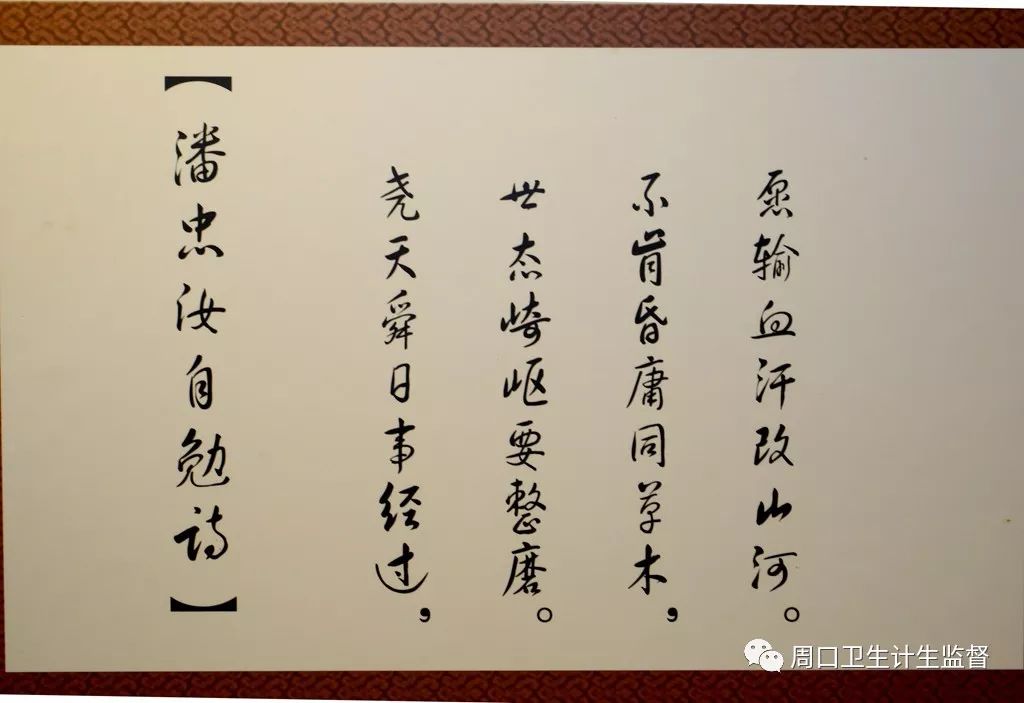 【潘忠汝自勉诗】
尧天舜日事经过，
世态崎岖要整磨。
不肯昏庸同草木，
愿输血汗改山河。
周口卫生计生监督